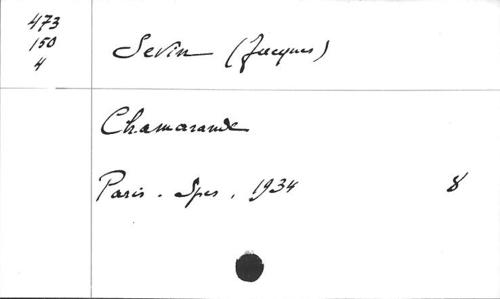 473
150
4
Sevin (Jacques)
Chamarande
Paris. Spes, 1934 8